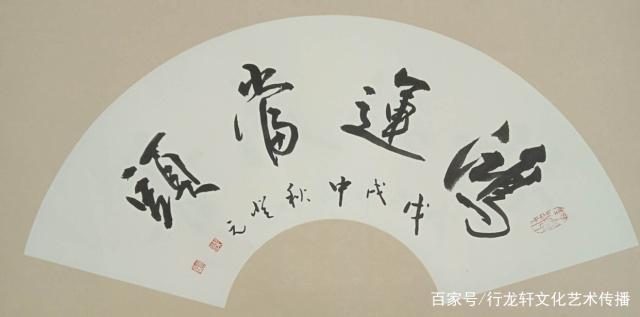 鴻運當頭
戊戌中秋登元
百家号/行龙轩文化艺术传播